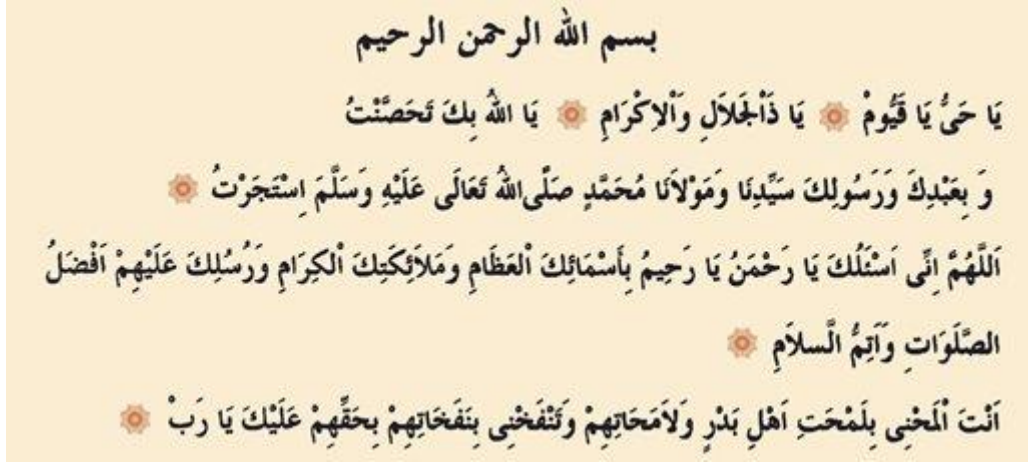 بسم الله الرحمن الرحيم
يَا حَىُّ يَا قَيُّومْ ۞ يَا ذَاْلجَلاَلِ وَاْلاِكْرَامِ ۞ يَا اللهُ بِكَ تَحَصَّنْتُ
وَ بِعَبْدِكَ وَرَسُولِكَ سَيِّدِنَا وَمَوْلاَنَا مُحَمَّدٍ صَلَّى اللهُ تَعَالَى عَلَيْهِ وَسَلَّمَ اِسْتَجَرْتُ ۞
اَللَّهُمَّ اِنِّى اَسْئَلُكَ يَا رَحْمَنُ يَا رَحِيمُ بِأَسْمَائِكَ اْلعَظَامِ وَمَلاَئِكَتِكَ اْلكِرَامِ وَرُسُلِكَ عَلَيْهِمْ اَفْضَلُ
الصَّلَوَاتِ وَآتِمُّ الَّسلاَمِ ۞
اَنْتَ اْلَمَحْنِى بِلَمْحَتِ اَهْلِ بَدْرٍ وَلاَمَحَاتِهِمْ وَتَنْفَحْنِى بِنَفَحَاتِهِمْ بِحَقِّهِمْ عَلَيْكَ يَا رَبْ ۞